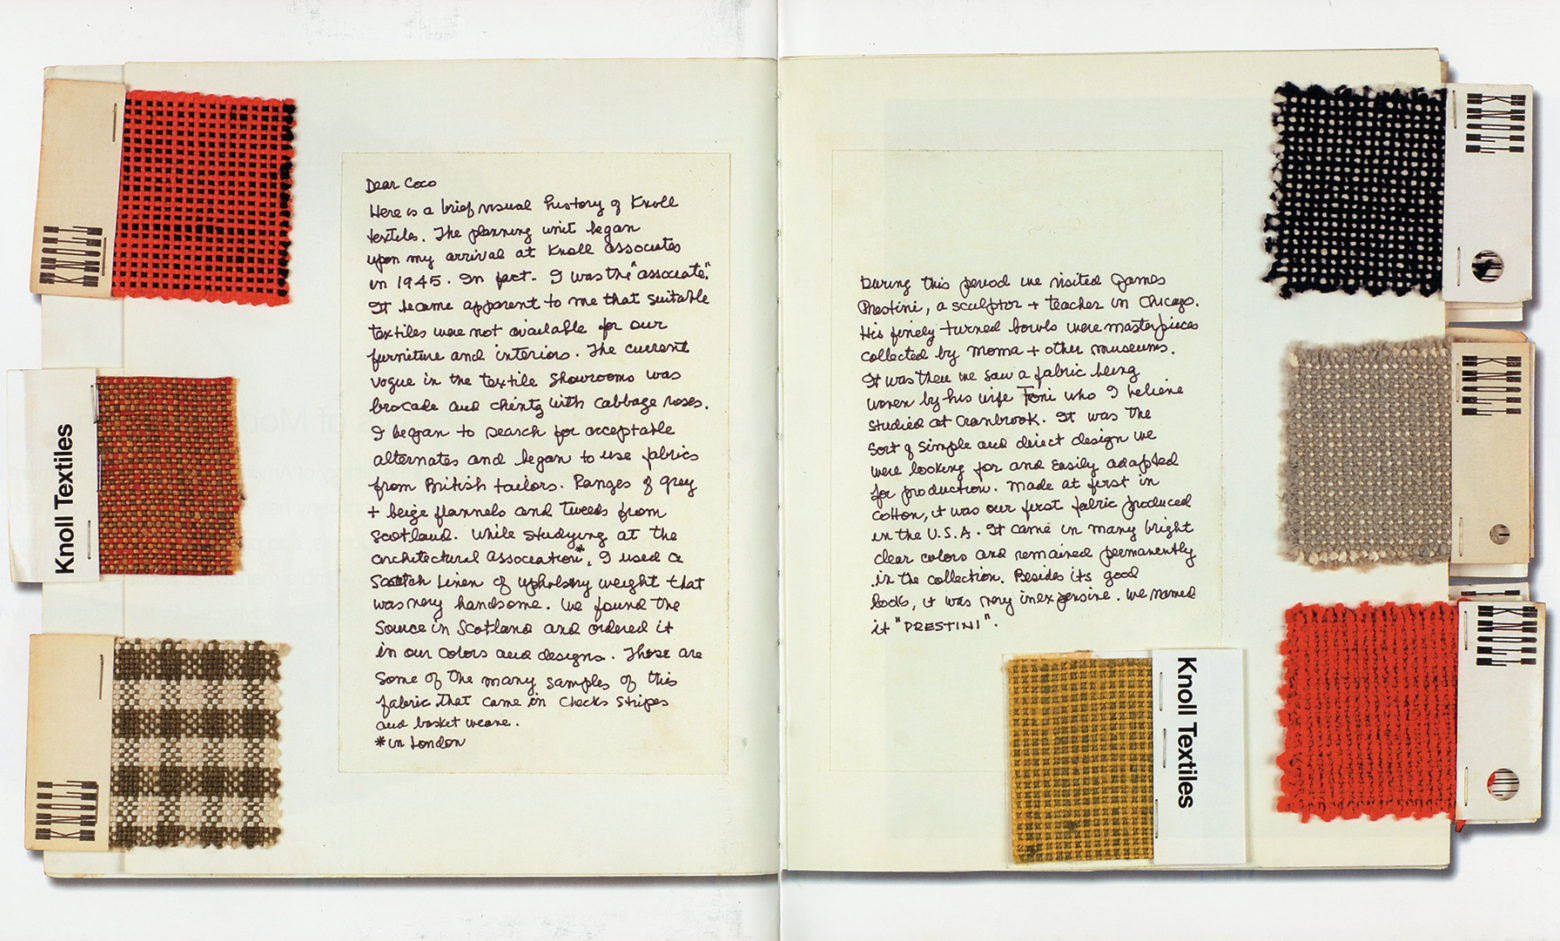 KNOLL
Knoll Textiles
KNOLL
Dear Coco
Here is a brief visual history of Knoll
textiles. The planning unit began
upon my arrival at Knoll associates
in 1945. In fact - I was the "associate".
It became apparent to me that suitable
textiles were not available for our
furniture and interiors. The current
vogue in the textile showrooms was
brocade and chintz with cabbage roses.
I began to search for acceptable
alternates and began to use fabrics
from British tailors. Ranges of grey
+ beige flannels and tweeds from
Scotland. While studying at the
architectural association*, I used a
Scotch Linen of upholstry weight that
was very handsome. We found the
source in Scotland and ordered it
in our colors and designs. Those are
some of the many samples of this
fabric that came in checks stripes
and basket weave.
*in London
During this period we visited James
Prestini, a sculptor + teacher in Chicago.
His finely turned bowls were masterpieces
collected by Moma + other museums.
It was then we saw a fabric being
woven by his wife Toni who I believe
studied at Cranbrook. It was the
sort of simple and direct design we
were looking for and easily adapted
for production. Made at first in
cotton, it was our first fabric produced
in the U.S.A. It came in many bright
clear colors and remained permanently
in the collection. Besides its good
looks, it was very inexpensive. We named
it "PRESTINI".
Knoll Textiles
KNOLL
KNOLL
KNOLL